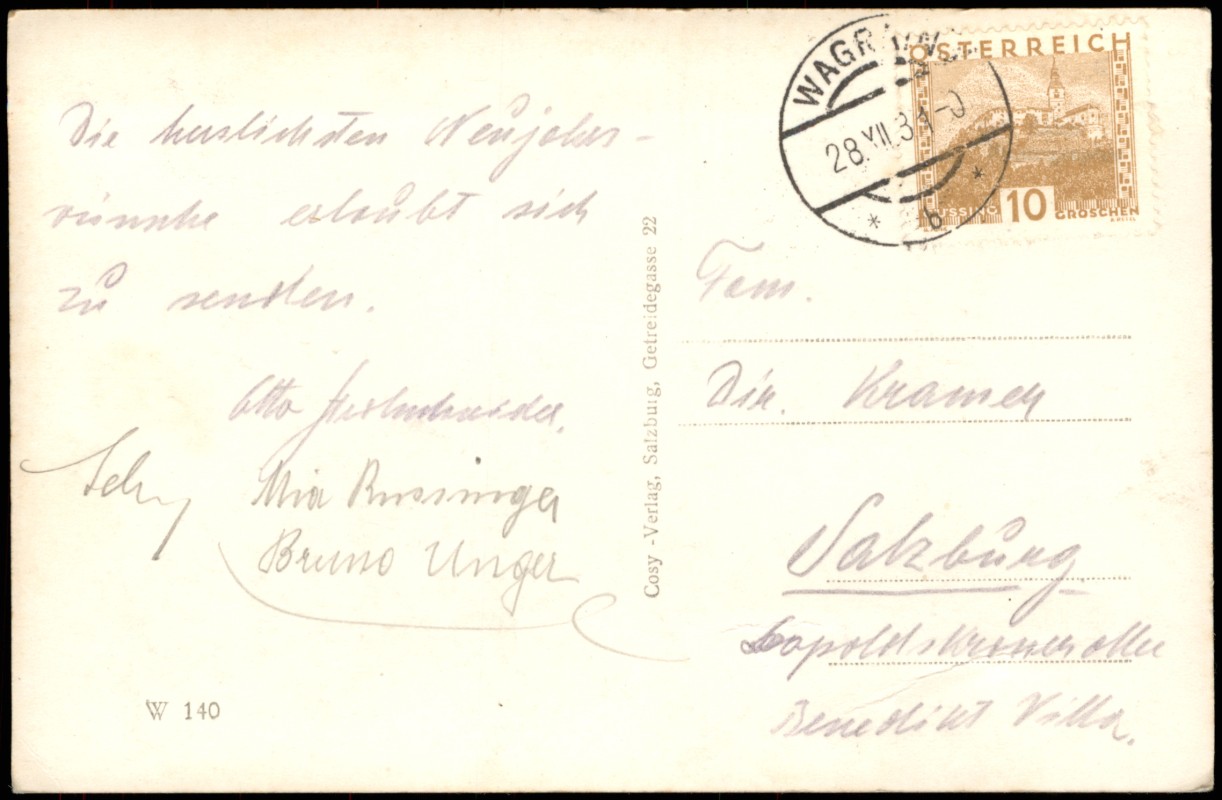 Die herzlichsten Neujahrs-
wünsche erlaubt sich
zu senden.
Otto
Mia Russinger
Bruno Unger
W 140
Cosy -Verlag, Salzburg, Getreidegasse 22
WAGRAIN
28.XII.31
* b *
ÖSTERREICH
10
GROSCHEN
Fam.
Dir. Kramer
Salzburg
Leopoldskroneralle
Benedikt Villa.